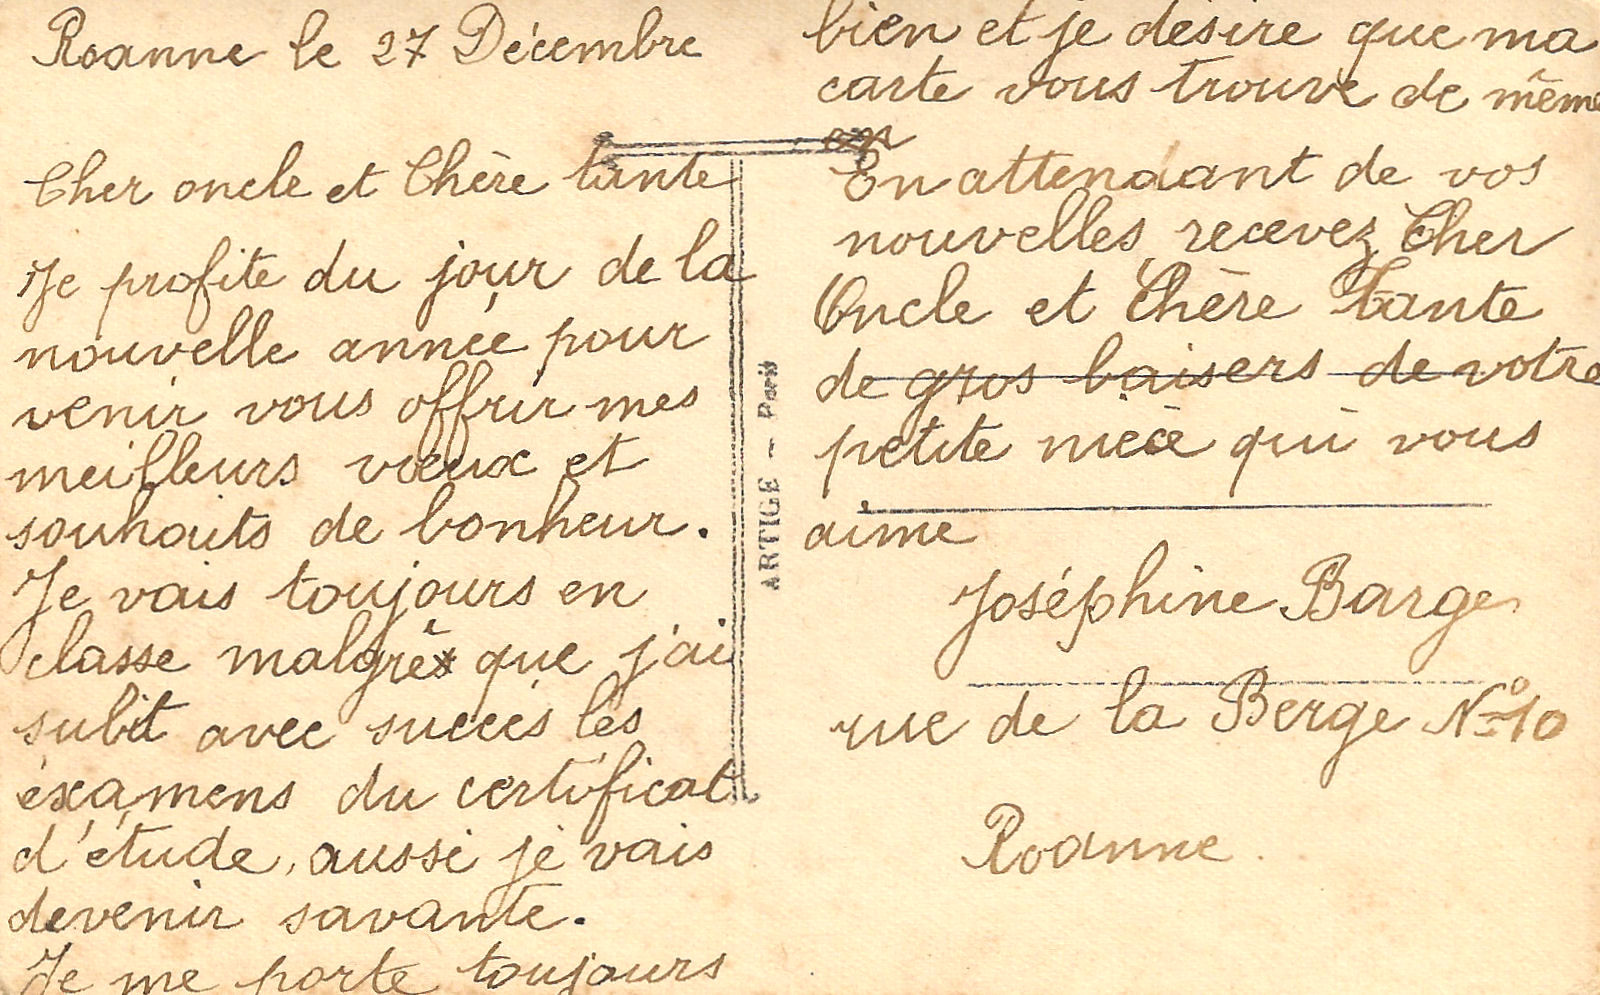 Roanne le 27 Décembre
Cher oncle et Chère tante
Je profite du jour de la
nouvelle année pour
venir vous offrir mes
meilleurs vœux et
souhaits de bonheur.
Je vais toujours en
classe malgré que j'ai
subit avec succès les
éxamens du certificat
d'étude, aussi je vais
devenir savante.
Je me porte toujours
bien et je désire que ma
carte vous trouve de même
En attendant de vos
nouvelles, recevez Cher
Oncle et Chère Tante
de gros baisers de votre
petite nièce qui vous
aime
Joséphine Barge
rue de la Berge Nº 10
Roanne.
ARTIGE - Paris